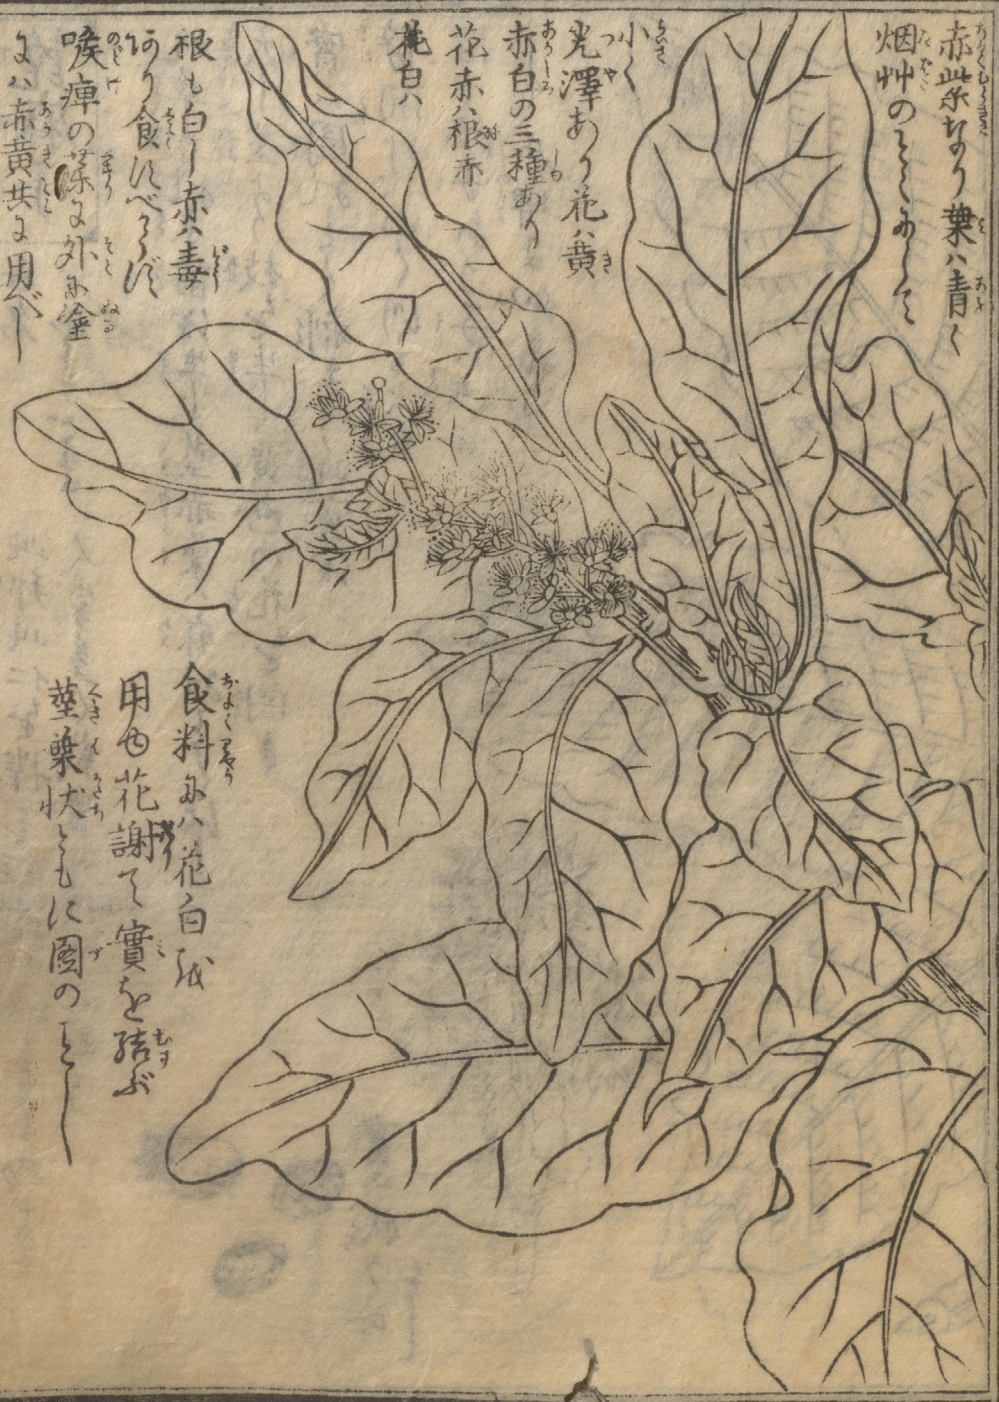 赤紫なり葉ハ青く
烟艸のごとくにして
小く
光澤あり花ハ黄
赤白の三種あり
花赤ハ根赤
花白ハ
根も白し赤ハ毒
あり食すべからず
喉痺の薬に外に塗
にハ赤黄共に用べし
食料にハ花白を
用ゆ花謝て實を結ぶ
莖葉状ともに圖のごとし